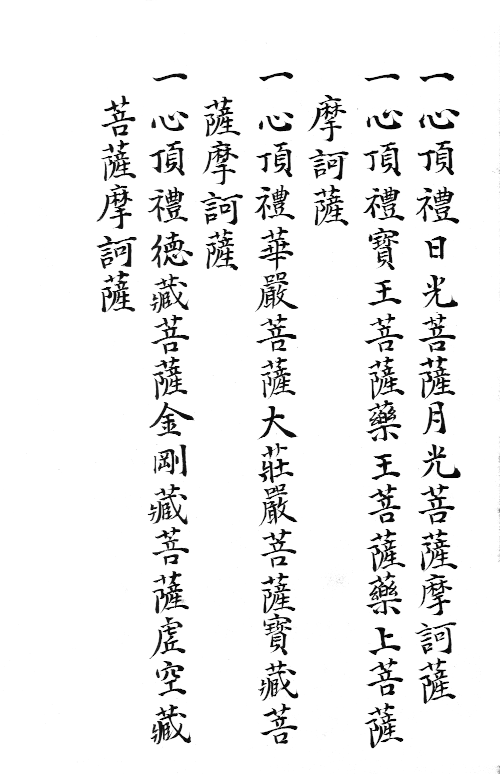 一心頂禮日光菩薩月光菩薩摩訶薩
一心頂禮寶王菩薩藥王菩薩藥上菩薩
摩訶薩
一心頂禮華嚴菩薩大莊嚴菩薩寶藏菩
薩摩訶薩
一心頂禮德藏菩薩金剛藏菩薩虛空藏
菩薩摩訶薩